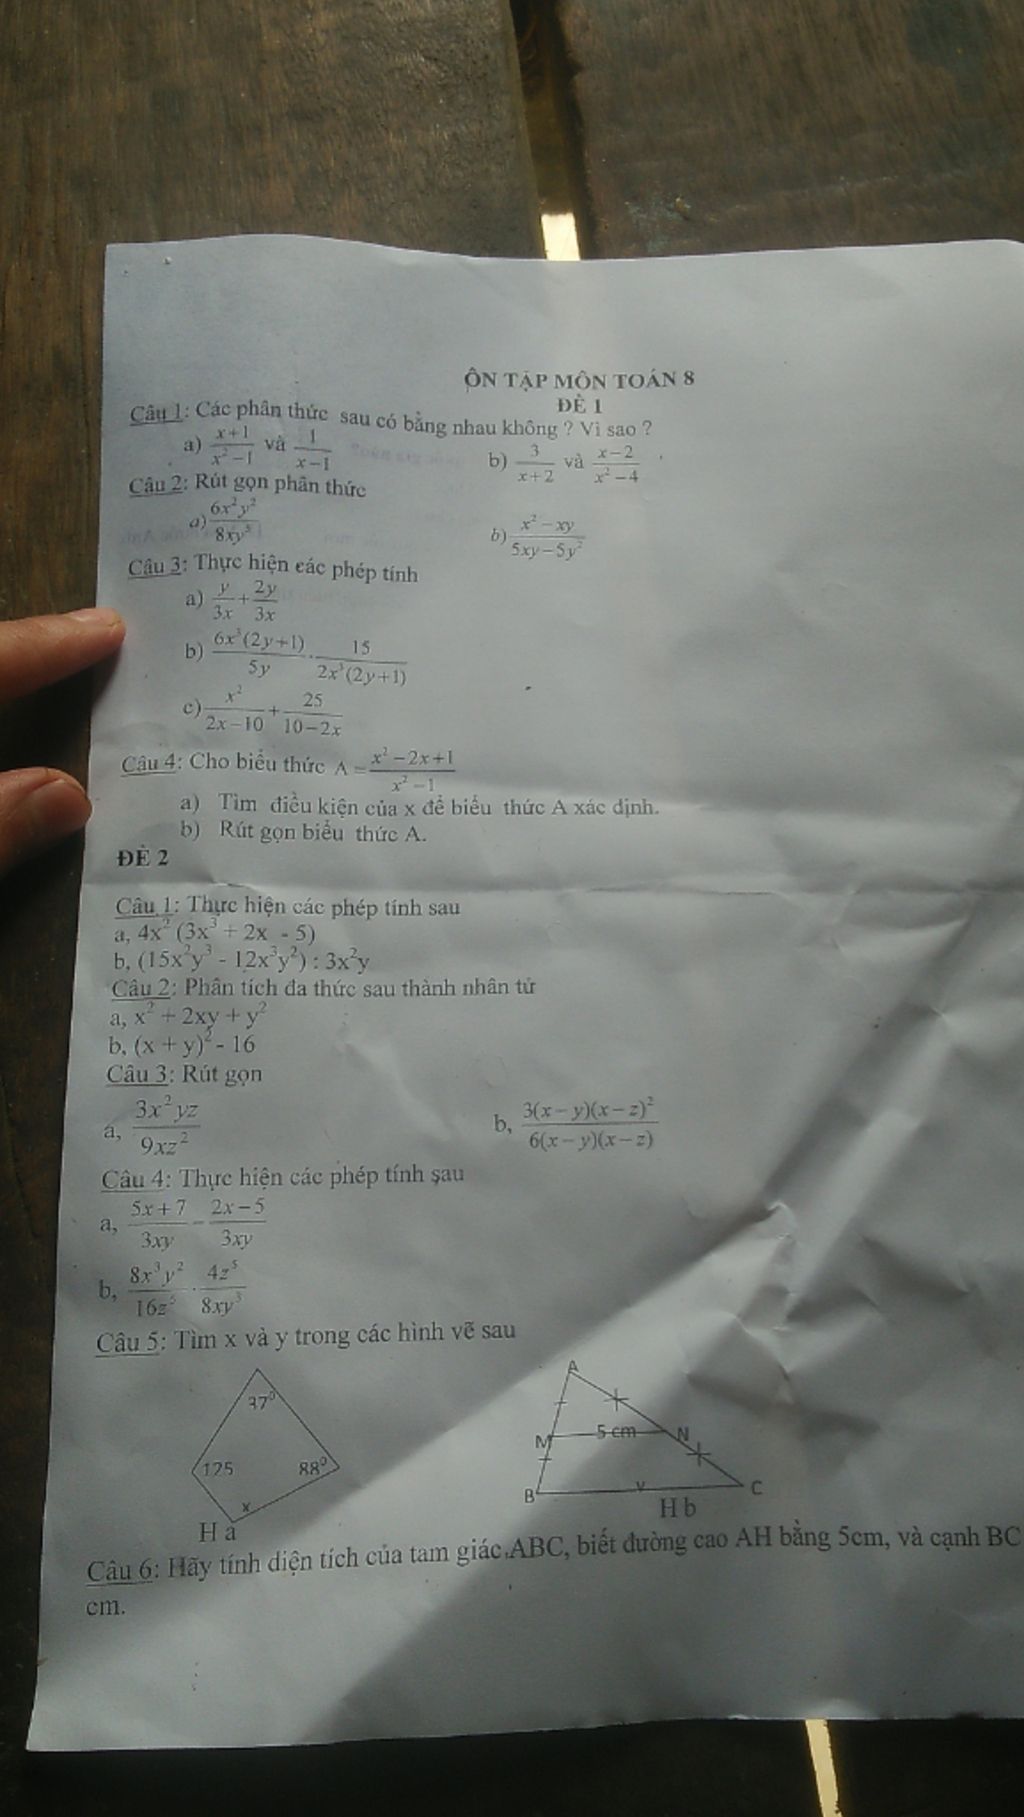 ÔN TẬP MÔN TOÁN 8
ĐỀ 1
Câu 1: Các phân thức sau có bằng nhau không ? Vì sao ?
a) \frac{x+1}{x^2-1} và \frac{1}{x-1} b) \frac{3}{x+2} và \frac{x-2}{x^2-4}
Câu 2: Rút gọn phân thức
a) \frac{6x^2y^2}{8xy^5} b) \frac{x^2-xy}{5xy-5y^2}
Câu 3: Thực hiện các phép tính
a) \frac{y}{3x}+\frac{2y}{3x}
b) \frac{6x^3(2y+1)}{5y}.\frac{15}{2x^3(2y+1)}
c) \frac{x^2}{2x-10}+\frac{25}{10-2x}
Câu 4: Cho biểu thức A = \frac{x^2-2x+1}{x^2-1}
a) Tìm điều kiện của x để biểu thức A xác định.
b) Rút gọn biểu thức A.
ĐỀ 2
Câu 1: Thực hiện các phép tính sau
a, 4x² (3x³ + 2x - 5)
b, (15x²y³ - 12x³y²) : 3x²y
Câu 2: Phân tích đa thức sau thành nhân tử
a, x² + 2xy + y²
b, (x + y)² - 16
Câu 3: Rút gọn
a, \frac{3x^2yz}{9xz^2} b, \frac{3(x-y)(x-z)^2}{6(x-y)(x-z)}
Câu 4: Thực hiện các phép tính sau
a, \frac{5x+7}{3xy}-\frac{2x-5}{3xy}
b, \frac{8x^3y^2}{16z^5}.\frac{4z^5}{8xy^3}
Câu 5: Tìm x và y trong các hình vẽ sau
A
37⁰
M 5 cm N
125 88⁰
x
B y C
H a H b
Câu 6: Hãy tính diện tích của tam giác ABC, biết đường cao AH bằng 5cm, và cạnh BC
cm.